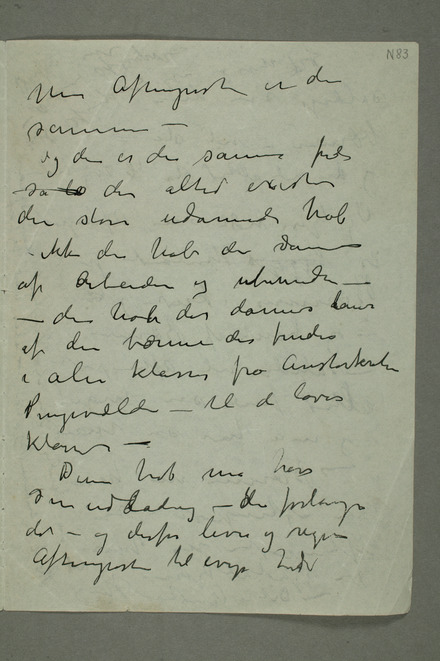 N83
Men Aftenposten er den
samme —
og den er den samme fordi
den altid existerer
den store udannede hob
– ikke den hob der dannes
af Arbeidere og ubemidlede —
— den hob der dannes
af den bærme der findes
i alle klasser fra Aristokratiet
Pengevælde — til de lavere
klasser —
Denne hob må have
sin udladning – den forlanger
det – og derfor lever og regjerer
Aftenposten til evige tider